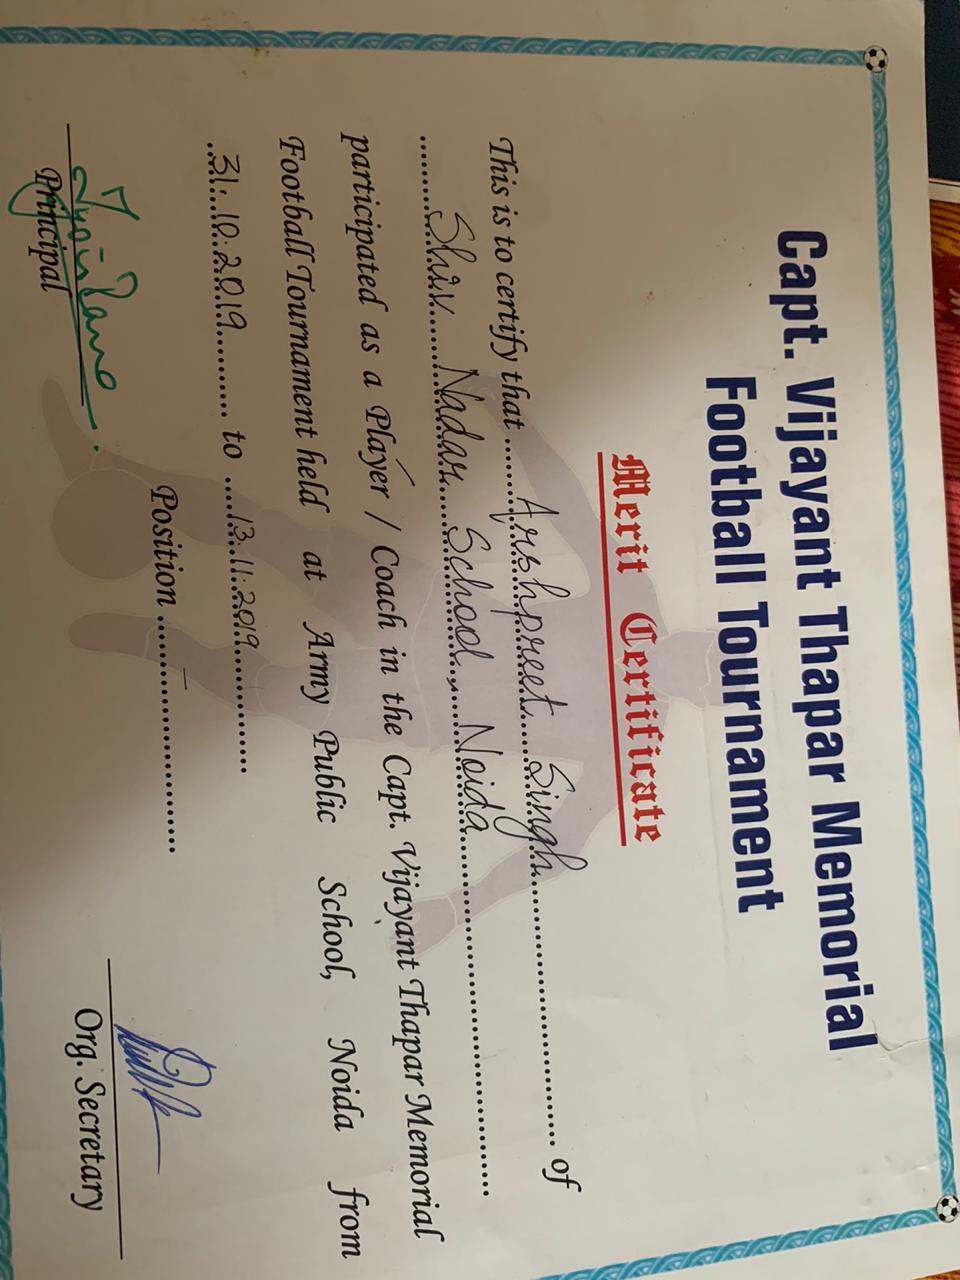 Capt. Vijayant Thapar Memorial
Football Tournament
Merit Certificate
This is to certify that ......Arshpreet Singh...... of
......Shiv Nadar School, Noida......
participated as a Player / Coach in the Capt. Vijayant Thapar Memorial
Football Tournament held at Army Public School, Noida from
...31.10.2019... to ...13.11.2019...
Position ......–......
Principal
Org. Secretary